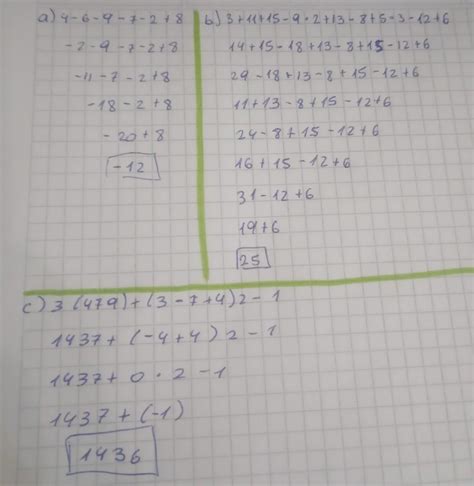 a) 4-6-9-7-2+8
-2-9-7-2+8
-11-7-2+8
-18-2+8
-20+8
-12
b) 3+11+15-9·2+13-8+5·3-12+6
14+15-18+13-8+15-12+6
29-18+13-8+15-12+6
11+13-8+15-12+6
24-8+15-12+6
16+15-12+6
31-12+6
19+6
25
c) 3(479)+(3-7+4)2-1
1437+(-4+4)2-1
1437+0·2-1
1437+(-1)
1436